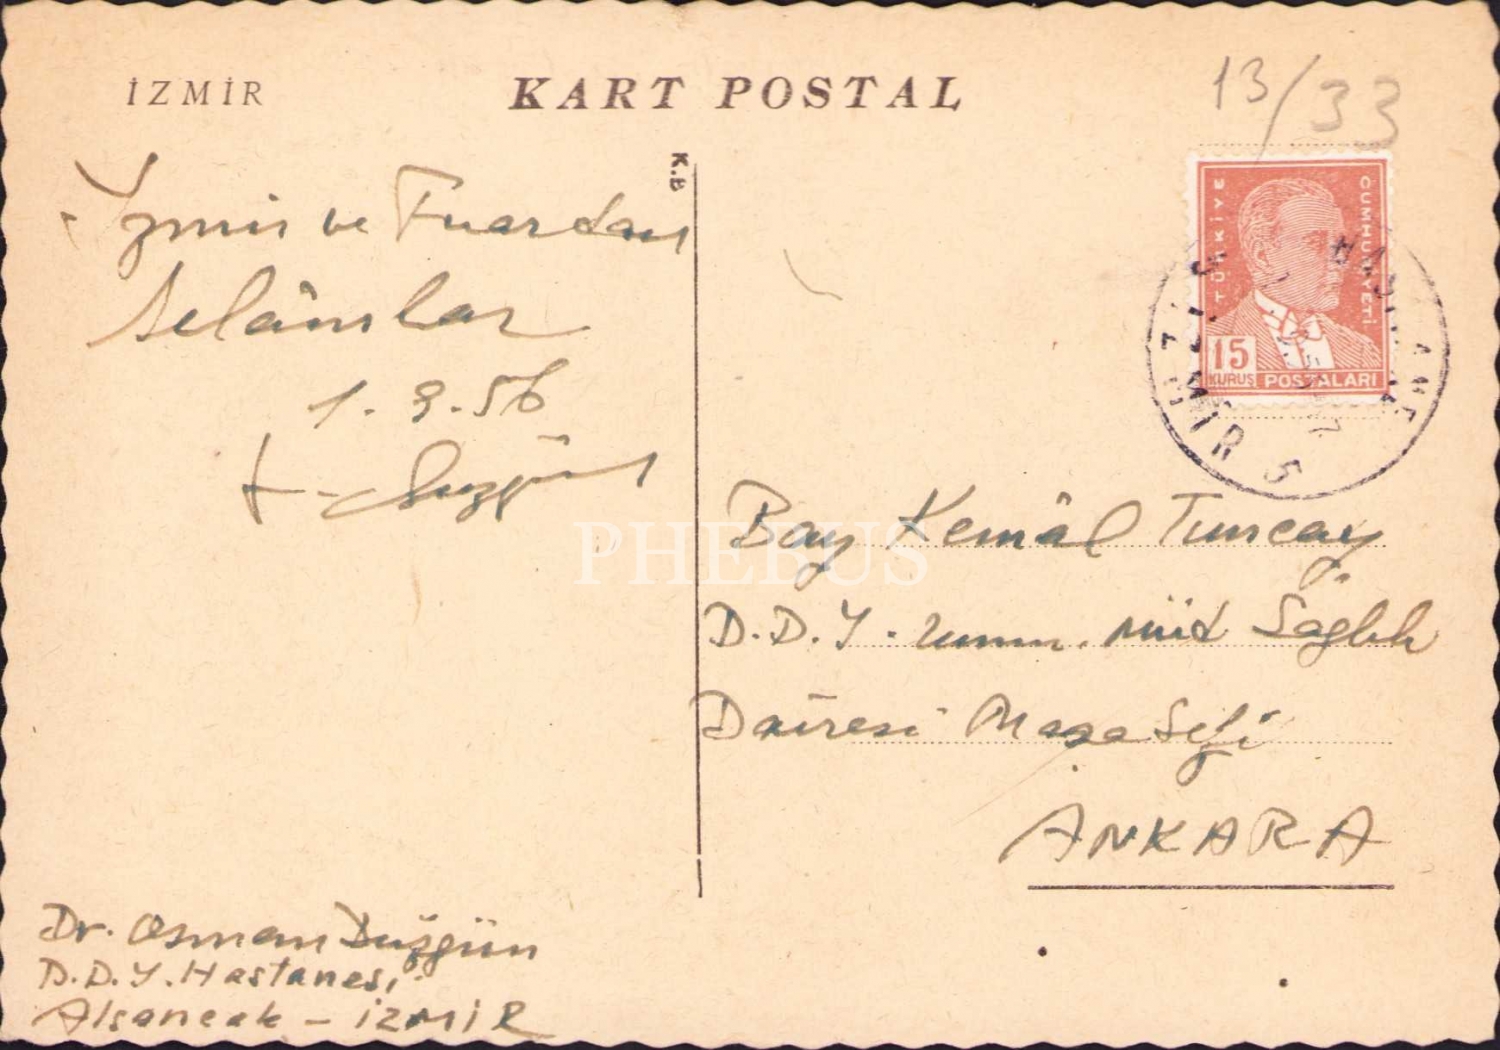 İZMİR
KART POSTAL
13/33
K.B
İzmir ve Fuardan
selâmlar
1.9.56
TÜRKİYE CUMHURİYETİ
15
KURUŞ POSTALARI
İZMİR 5
Bay Kemâl Tuncay
D.D.Y. Umum. Müd Sağlık
Dairesi Masa Şefi
ANKARA
PHEBUS
Dr. Osman Düzgün
D.D.Y. Hastanesi
Alsancak - İZMİR